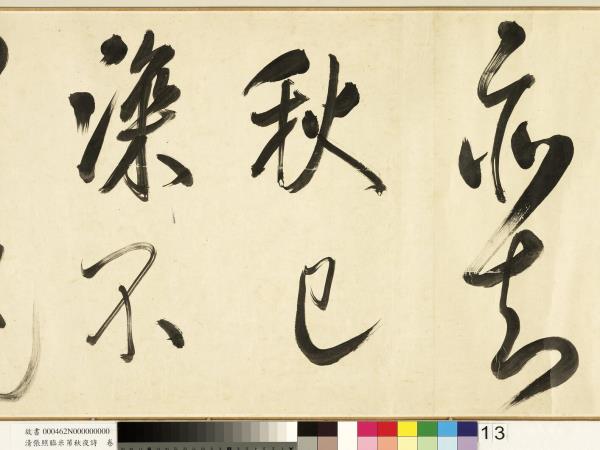 亦知
秋已
深不
故書 000462N000000000
清張照臨米芾秋夜詩 卷
13